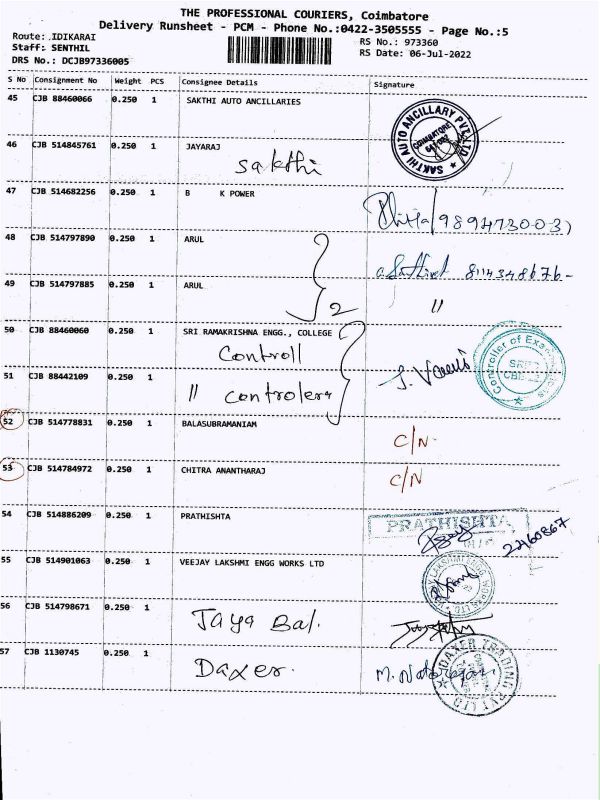 THE PROFESSIONAL COURIERS, Coimbatore
Delivery Runsheet - PCM - Phone No.:0422-3505555 - Page No.:5
Route: IDIKARAI
Staff: SENTHIL
DRS No.: DCJB97336005
RS No.: 973360
RS Date: 06-Jul-2022
S No Consignment No Weight PCS Consignee Details Signature
45 CJB 88460066 0.250 1 SAKTHI AUTO ANCILLARIES
SAKTHI AUTO ANCILLARY PVT LTD COIMBATORE
46 CJB 514845761 0.250 1 JAYARAJ
sakthi
47 CJB 514682256 0.250 1 B K POWER
48 CJB 514797890 0.250 1 ARUL
49 CJB 514797885 0.250 1 ARUL
2 "
50 CJB 88460060 0.250 1 SRI RAMAKRISHNA ENGG., COLLEGE
Controll
51 CJB 88442109 0.250 1
" controlerr
Controller of Exa
52 CJB 514778831 0.250 1 BALASUBRAMANIAM
C/N
53 CJB 514784972 0.250 1 CHITRA ANANTHARAJ
C/N
54 CJB 514886209 0.250 1 PRATHISHTA
PRATHISHTA
22460867
55 CJB 514901063 0.250 1 VEEJAY LAKSHMI ENGG WORKS LTD
56 CJB 514798671 0.250 1
Jaya Bal.
57 CJB 1130745 0.250 1
Daxer.
DAXER TRADING PVT LTD